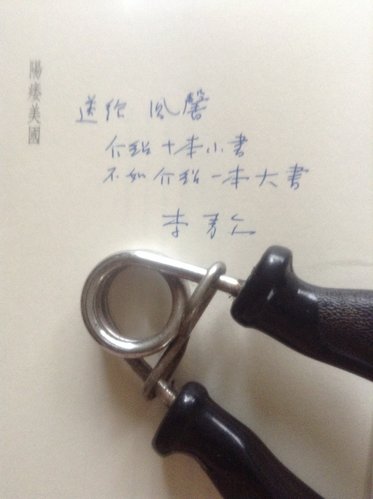 陽痿美國
送給 凤馨
介紹十本小書
不如介紹一本大書
李敖